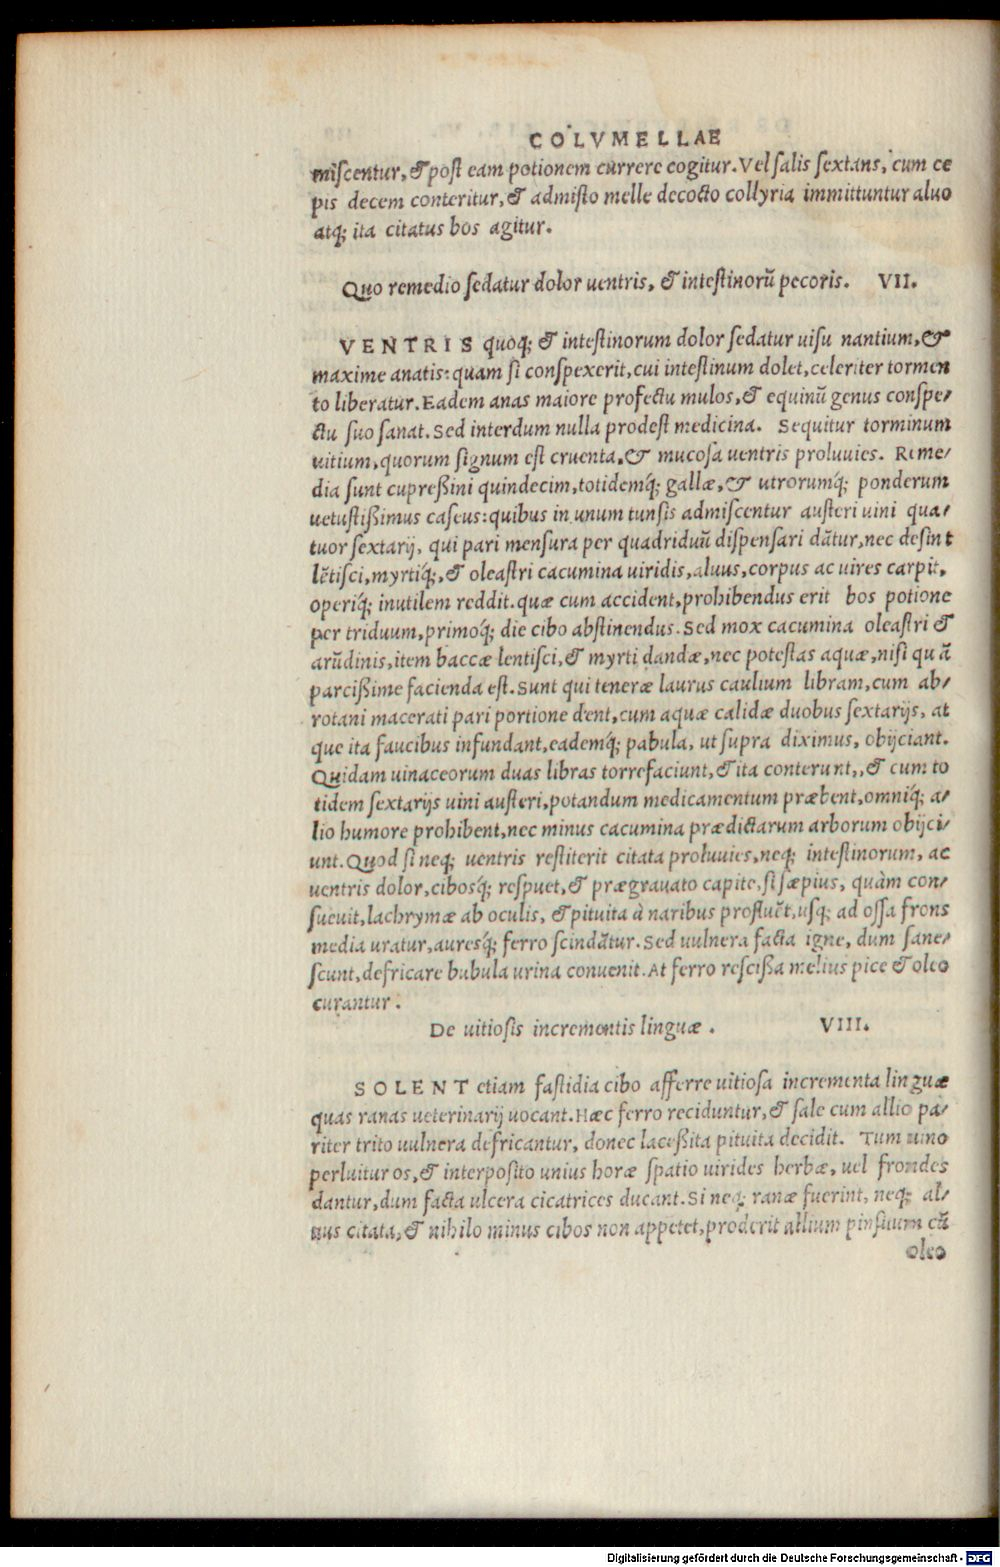 COLVMELLAE
miſcentur, & poſt eam potionem currere cogitur. Vel ſalis ſextans, cum ce
pis decem conteritur, & admiſto melle decocto collyria immittuntur aluo
atq; ita citatus bos agitur.
Quo remedio ſedatur dolor uentris, & inteſtinorū pecoris. VII.
VENTRIS quoq; & inteſtinorum dolor ſedatur uiſu nantium, &
maxime anatis: quam ſi conſpexerit, cui inteſtinum dolet, celeriter tormen
to liberatur. Eadem anas maiore profectu mulos, & equinū genus conſpe/
ctu ſuo ſanat. Sed interdum nulla prodeſt medicina. Sequitur torminum
uitium, quorum ſignum eſt cruenta, & mucoſa uentris proluuies. Reme/
dia ſunt cupreßini quindecim, totidemq́; gallæ, & utrorumq́; ponderum
uetuſtißimus caſeus: quibus in unum tunſis admiſcentur auſteri uini qua/
tuor ſextarij, qui pari menſura per quadriduū diſpenſari dātur, nec deſint
lētiſci, myrtiq́;, & oleaſtri cacumina uiridis, aluus, corpus ac uires carpit,
operiq́; inutilem reddit. quæ cum accident, prohibendus erit bos potione
per triduum, primoq́; die cibo abſtinendus. Sed mox cacumina oleaſtri &
arūdinis, item baccæ lentiſci, & myrti dandæ, nec poteſtas aquæ, niſi quā
parcißime facienda eſt. Sunt qui teneræ laurus caulium libram, cum ab/
rotani macerati pari portione dent, cum aquæ calidæ duobus ſextarijs, at
que ita faucibus infundant, eademq́; pabula, ut ſupra diximus, obijciant.
Quidam uinaceorum duas libras torrefaciunt, & ita conterunt,, & cum to
tidem ſextarijs uini auſteri, potandum medicamentum præbent, omniq́; a/
lio humore prohibent, nec minus cacumina prædictarum arborum obijci/
unt. Quod ſi neq; uentris reſtiterit citata proluuies, neq; inteſtinorum, ac
uentris dolor, cibosq́; reſpuet, & prægrauato capite, ſi ſæpius, quàm con/
ſueuit, lachrymæ ab oculis, & pituita à naribus profluēt, uſq; ad oſſa frons
media uratur, auresq́; ferro ſcindātur. Sed uulnera facta igne, dum ſane/
ſcunt, defricare bubula urina conuenit. At ferro reſcißa melius pice & oleo
curantur.
De uitioſis incrementis linguæ. VIII.
SOLENT etiam faſtidia cibo afferre uitioſa incrementa linguæ
quas ranas ueterinarij uocant. Hæc ferro reciduntur, & ſale cum allio pa/
riter trito uulnera defricantur, donec laceßita pituita decidit. Tum uino
perluitur os, & interpoſito unius horæ ſpatio uirides herbæ, uel frondes
dantur, dum facta ulcera cicatrices ducant. Si neq; ranæ fuerint, neq; al/
uus citata, & nihilo minus cibos non appetet, proderit allium pinſitum cū
oleo
Digitalisierung gefördert durch die Deutsche Forschungsgemeinschaft - DFG